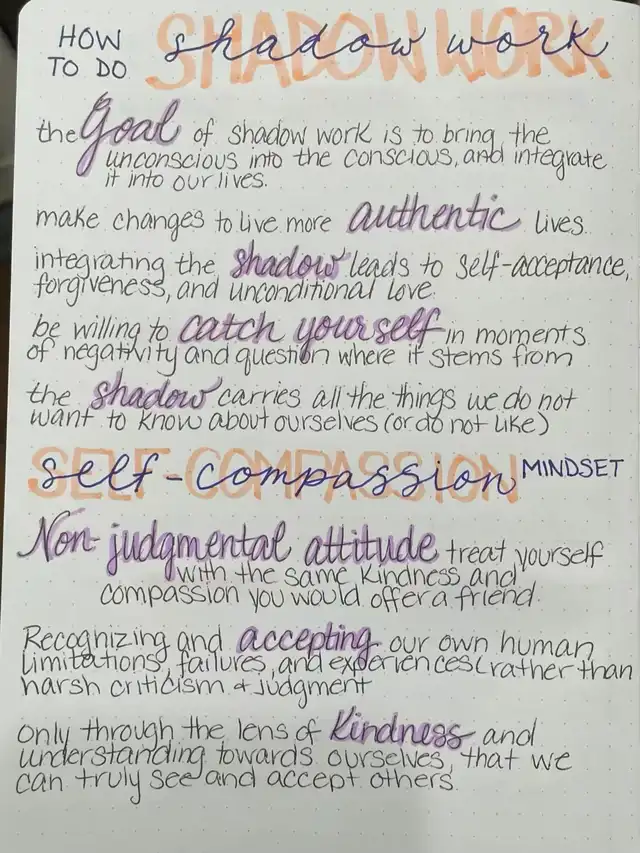 HOW
TO DO
SHADOW WORK
shadow work
the Goal of shadow work is to bring the
unconscious into the conscious, and integrate
it into our lives.
make changes to live more authentic lives.
integrating the shadow leads to self-acceptance,
forgiveness, and unconditional love.
be willing to catch yourself in moments
of negativity and question where it stems from
the shadow carries all the things we do not
want to know about ourselves (or do not like)
SELF-COMPASSION
self-compassion MINDSET
Non-judgmental attitude treat yourself
with the same kindness and
compassion you would offer a friend.
Recognizing and accepting our own human
limitations, failures, and experiences (rather than
harsh criticism & judgment
only through the lens of kindness and
understanding towards ourselves, that we
can truly see and accept others.